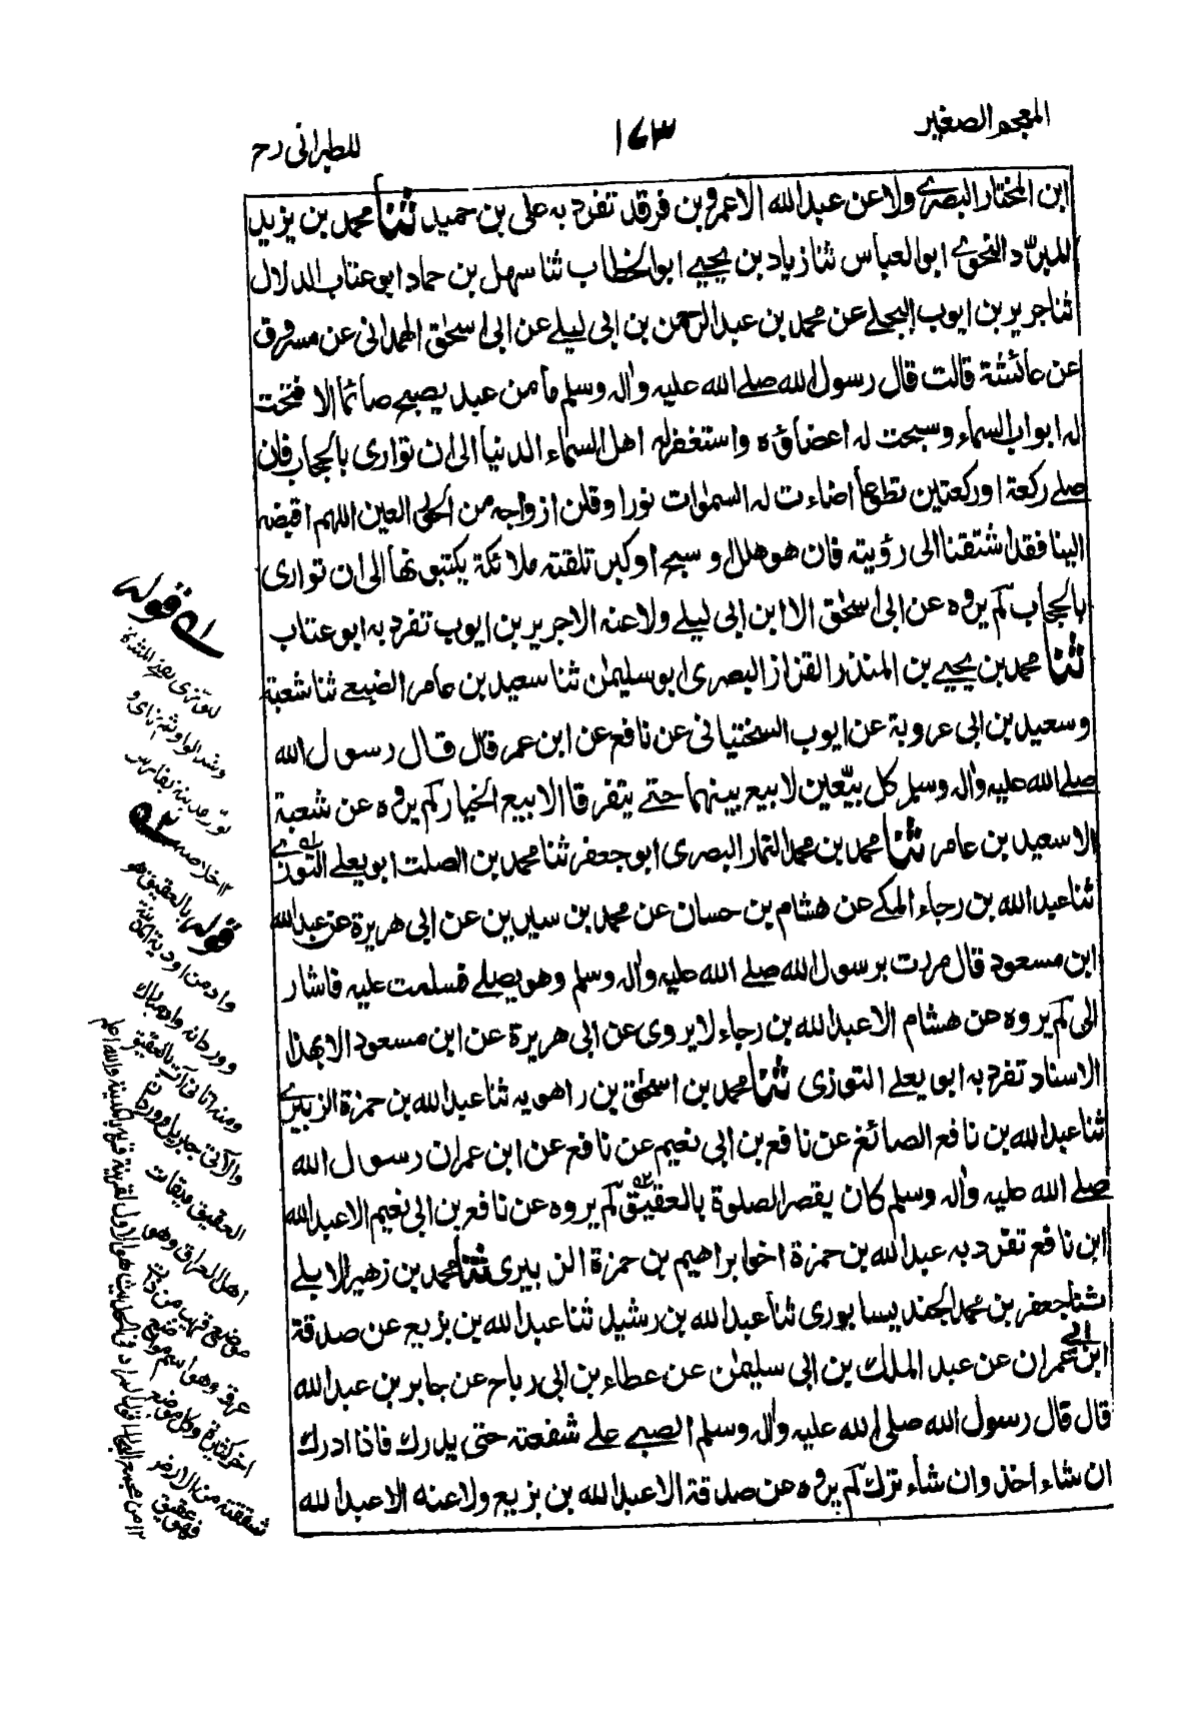 المعجم الصغير
١٧٣
للطبرانى رح
ابن المختار البصرے ولا عن عبد الله الا عمرو بن فرقد تفرد به على بن حميد ثنا محمد بن يزيد
المبرّد النحوے ابو العباس ثنا زياد بن يحيے ابو الخطاب ثنا سهل بن حماد ابو عتاب الدلال
ثنا جرير بن ايوب البجلے عن محمد بن عبد الرحمن بن ابى ليلے عن ابى اسحٰق الهمدانى عن مسروق
عن عائشة قالت قال رسول الله صلے الله عليه واٰله وسلم ما من عبد يصبح صائما الا فتحت
له ابواب السماء وسبحت له اعضاؤه واستغفر له اهل السماء الدنيا الى ان توارى بالحجاب فان
صلے ركعة او ركعتين تطوعا اضاءت له السمٰوات نورا وقلن ازواجه من الحور العين اللهم اقبضه
الينا فقد اشتقنا الى رؤيته فان هو هلل او سبح او كبر تلقته ملائكة يكتبونها الى ان توارى
بالحجاب لم يروه عن ابى اسحٰق الا ابن ابى ليلے ولا عنه الا جرير بن ايوب تفرد به ابو عتاب
ثنا محمد بن يحيے بن المنذر القزاز البصرى ابو سليمٰن ثنا سعيد بن عامر الضبعے ثنا شعبة
وسعيد بن ابى عروبة عن ايوب السختيانى عن نافع عن ابن عمر قال قال رسول الله
صلے الله عليه واٰله وسلم كل بيّعين لا بيع بينهما حتے يتفرقا الا بيع الخيار لم يروه عن شعبة
الا سعيد بن عامر ثنا محمد بن محمد التمار البصرى ابو جعفر ثنا محمد بن الصلت ابو يعلے التوزے
ثنا عبد الله بن رجاء المكے عن هشام بن حسان عن محمد بن سيرين عن ابى هريرة عن عبد الله
ابن مسعود قال مررت برسول الله صلے الله عليه واٰله وسلم وهو يصلے فسلمت عليه فاشار
الى لم يروه عن هشام الا عبد الله بن رجاء لا يروى عن ابى هريرة عن ابن مسعود الا بهذا
الاسناد تفرد به ابو يعلے التوزى ثنا محمد بن اسحٰق بن راهويه ثنا عبد الله بن حمزة الزبيرے
ثنا عبد الله بن نافع الصائغ عن نافع بن ابى نعيم عن نافع عن ابن عمر ان رسول الله
صلے الله عليه واٰله وسلم كان يقصر الصلوة بالعقيق لم يروه عن نافع بن ابى نعيم الا عبد الله
ابن نافع تفرد به عبد الله بن حمزة اخو ابراهيم بن حمزة الزبيرى ثنا محمد بن زهير الابلے
ثنا جعفر بن محمد الجنديسابورى ثنا عبد الله بن رشيد ثنا عبد الله بن بزيع عن صدقة
ابن ابى عمران عن عبد الملك بن ابى سليمٰن عن عطاء بن ابى رباح عن جابر بن عبد الله
قال قال رسول الله صلى الله عليه واٰله وسلم الصبے علے شفعته حتى يدرك فاذا ادرك
ان شاء اخذ وان شاء ترك لم يروه عن صدقة الا عبد الله بن بزيع ولا عنه الا عبد الله
١ه قوله
التوزى بفتح المثناة
وشد الواو
١٢ خلاصه ٢ه
قوله بالعقيق هو
واد من اودية المدينة
وورد انه واد مبارك
ومنه اتانى آت بالعقيق
العقيق ميقات
اهل العراق وهو
موضع قريب من ذات
عرق وهو اسم مواضع
اخر كثيرة وكل موضع
شققته من الارض
فهو عقيق